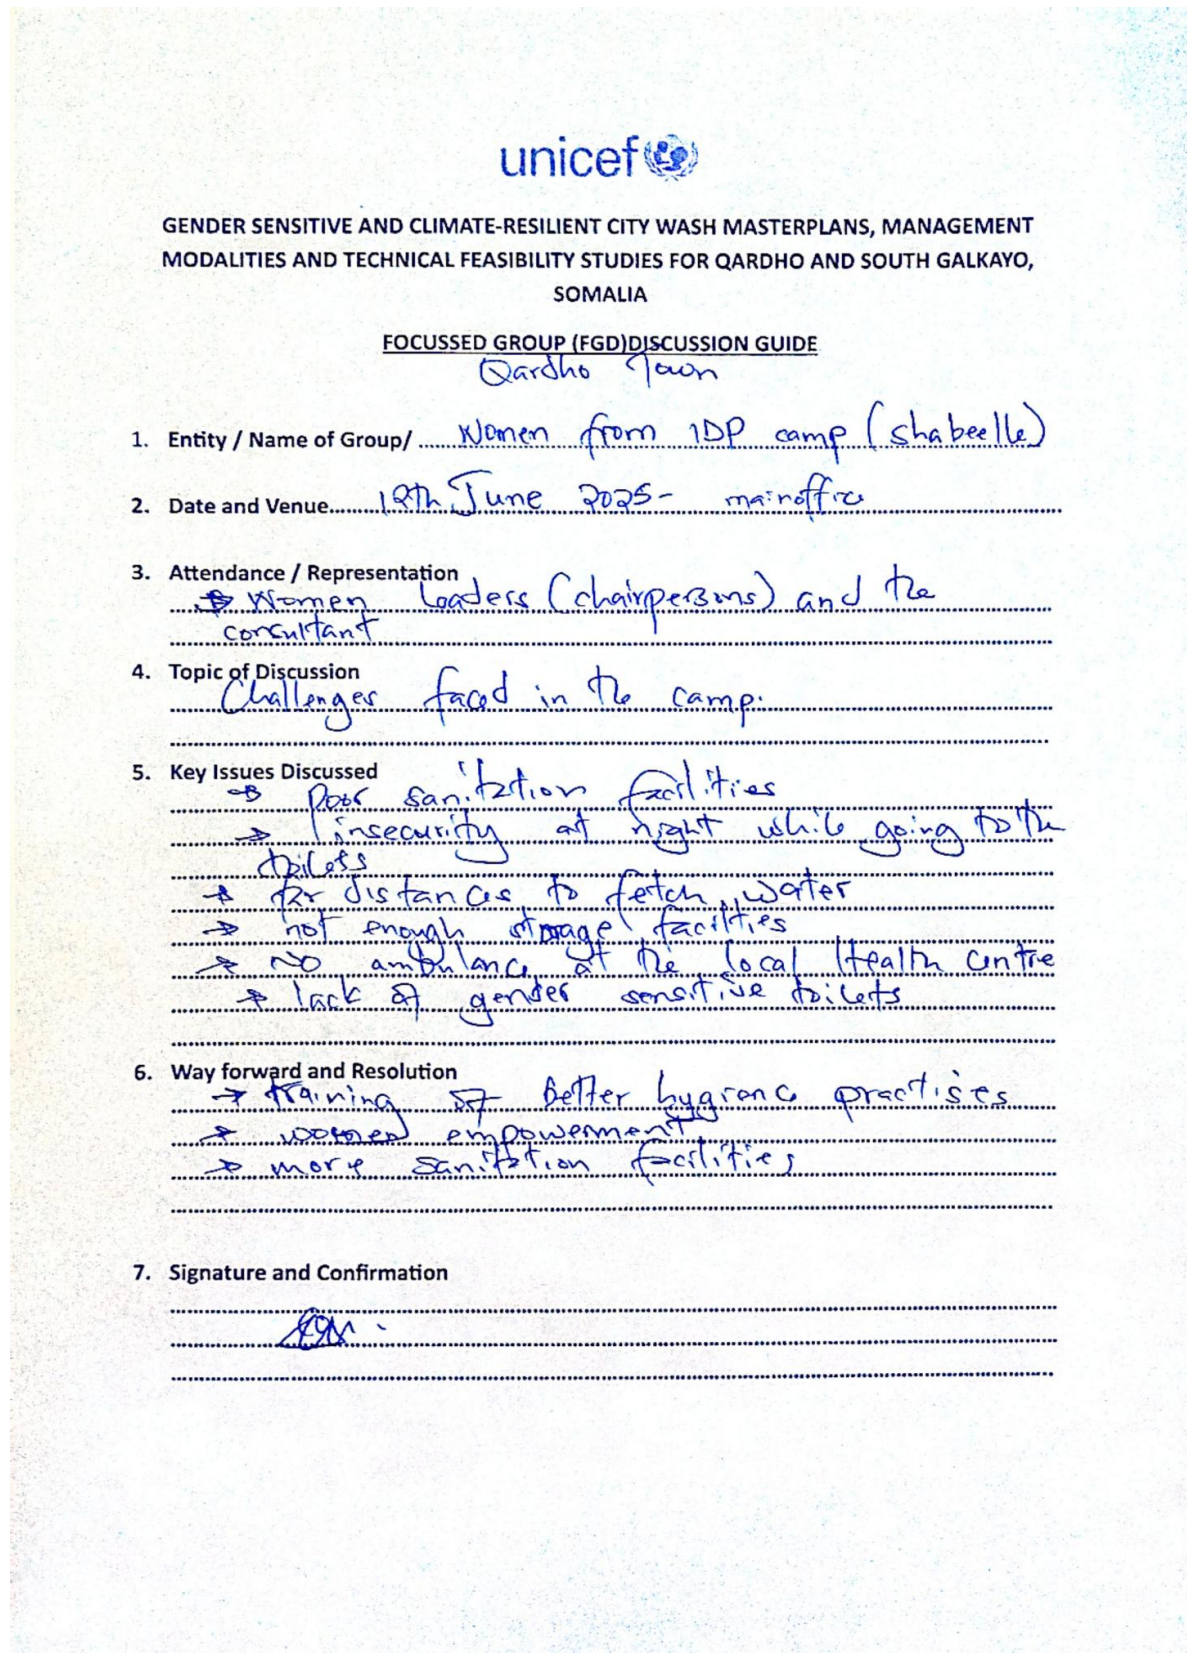 unicef
GENDER SENSITIVE AND CLIMATE-RESILIENT CITY WASH MASTERPLANS, MANAGEMENT
MODALITIES AND TECHNICAL FEASIBILITY STUDIES FOR QARDHO AND SOUTH GALKAYO,
SOMALIA
FOCUSSED GROUP (FGD)DISCUSSION GUIDE
Qardho Town
1. Entity / Name of Group/ Women from IDP camp (shabeelle)
2. Date and Venue June 2025- main office
3. Attendance / Representation
→ Women Leaders (chairpersons) and the
consultant
4. Topic of Discussion
Challenges faced in the camp.
5. Key Issues Discussed
→ Poor sanitation facilities
→ insecurity at night while going to the
toilets
→ far distances to fetch water
→ not enough storage facilities
→ No ambulance at the local Health centre
→ lack of gender sensitive toilets
6. Way forward and Resolution
→ training of Better practises
→ women empowerment
→ more sanitation facilities
7. Signature and Confirmation